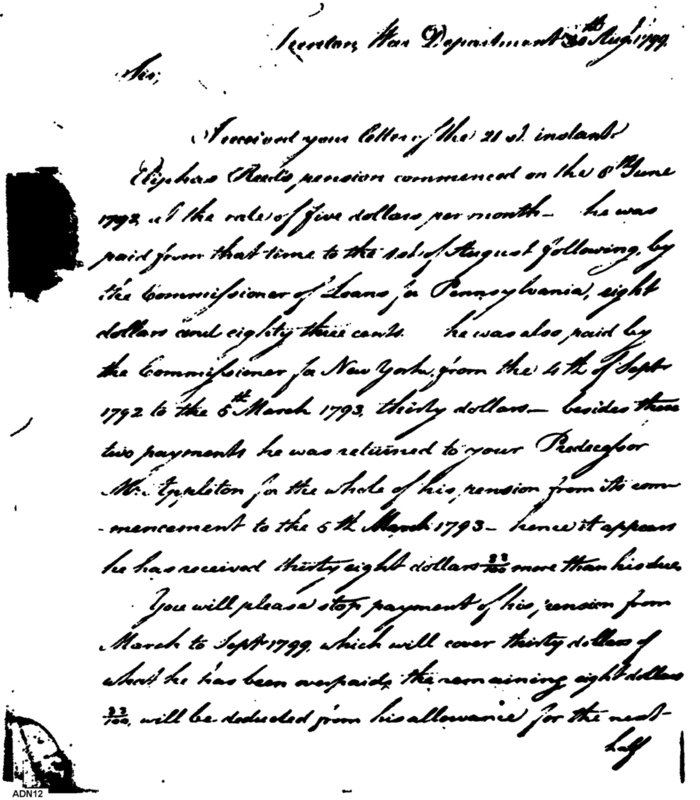 Trenton, War Department 30th Augt 1799.
Sir,
I received your letter of the 21st. instant
Eliphas Reed's pension commenced on the 8th June
1792, at the rate of five dollars per month - he was
paid from that time to the 1st of August following, by
the Commissioner of Loans for Pennsylvania, eight
dollars and eighty three cents. he was also paid by
the Commissioner for New York, from the 4th of Septr
1792 to the 5th March 1793, thirty dollars - besides these
two payments he was returned to your Predecessor
Mr. Appleton for the whole of his pension from its com
-mencement to the 5th March 1793 - hence it appears
he has received thirty eight dollars 83/100 more than his due.
You will please stop payment of his pension from
March to Septr 1799, which will cover thirty dollars of
what he has been overpaid, the remaining eight dollars
83/100, will be deducted from his allowance for the next
half
ADN12